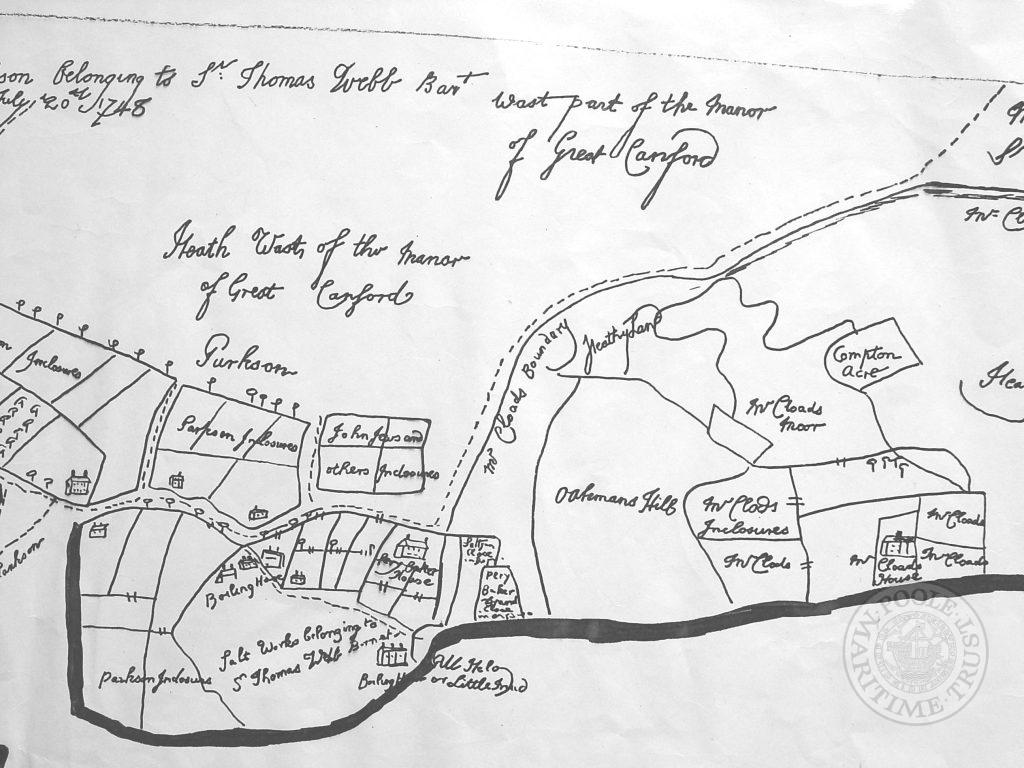 son Belonging to Sr. Thomas Webb Bart
July 20th 1748
Wast part of the Manor
of Great Canford
Mr. Clo
Heath Wast of the Manor
of Great Canford
Parkson
Inclosures
Parkson Inclosures
John
others Inclosures
Mr. Cloads Boundary
Heathy Land
Compton
Acre
Hea
Mr Cloads
Moor
Oakmans Hill
Mr Clods
Inclosures
Mr Clods
Mr Cloads
Mr Cloads
Mr Cloads
House
Parkson
Boiling House
Pery Baker
House
Pery
Baker
Salt Works belonging to
Sr Thomas Webb
Parkson Inclosures
or Little
POOLE MARITIME TRUST